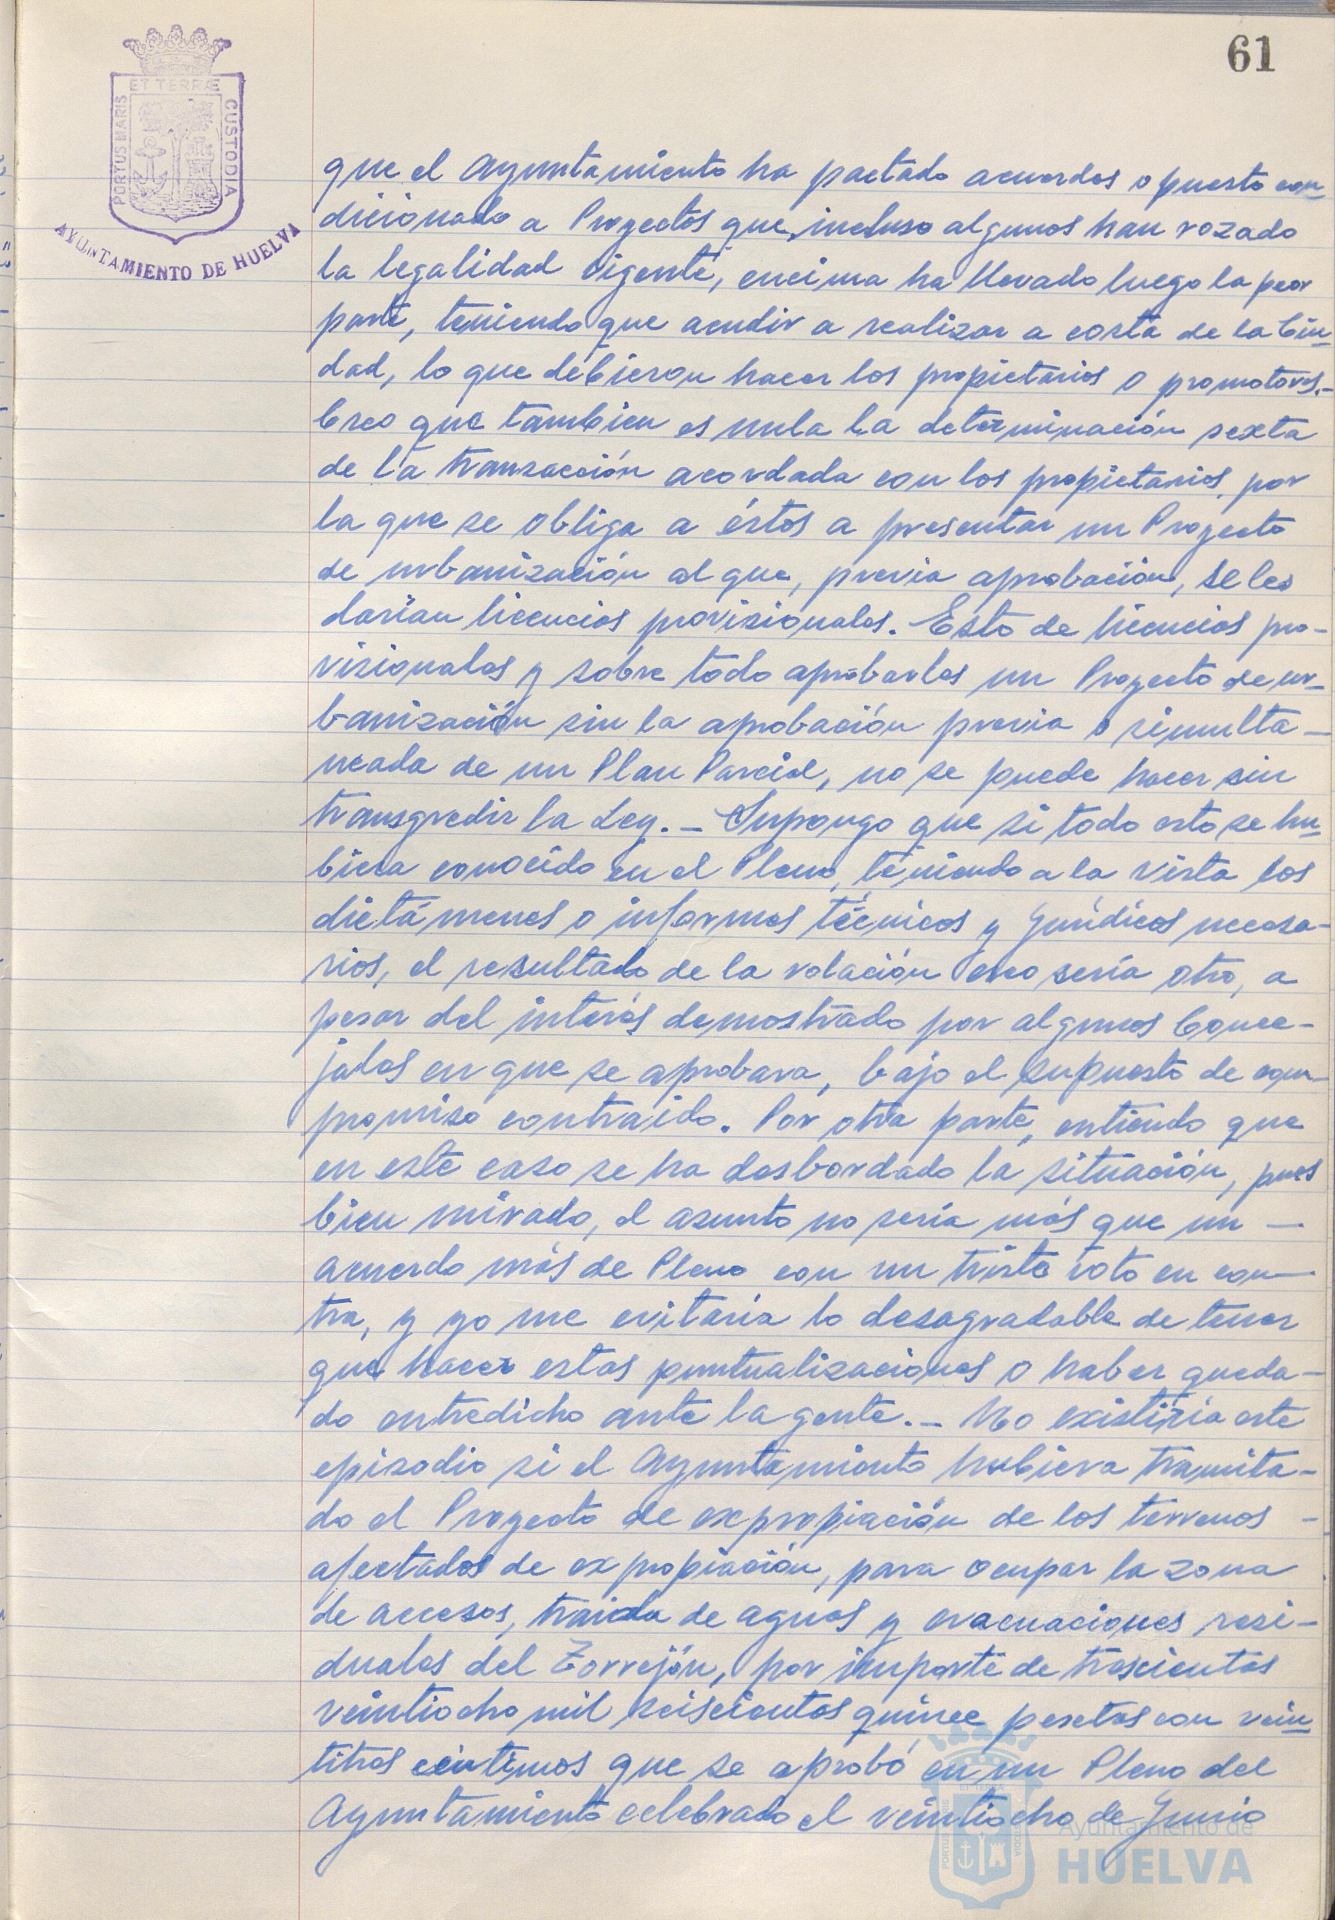 61
ET TERRÆ
PORTUS MARIS
CUSTODIA
AYUNTAMIENTO DE HUELVA
que el Ayuntamiento ha pactado acuerdos o puesto con-
dicionado a Proyectos que, incluso algunos han rozado
la legalidad vigente, encima ha llevado luego la peor
parte, teniendo que acudir a realizar a costa de la Ciu-
dad, lo que debieron hacer los propietarios o promotores.-
Creo que tambien es nula la determinación sexta
de la transacción acordada con los propietarios, por
la que se obliga a éstos a presentar un Proyecto
de urbanización al que, previa aprobación, se les
darían licencias provisionales. Esto de licencias pro-
visionales y sobre todo aprobarles un Proyecto de ur-
banización sin la aprobación previa o simulta-
neada de un Plan Parcial, no se puede hacer sin
transgredir la Ley.- Supongo que si todo esto se hu-
biera conocido en el Pleno, teniendo a la vista los
dictámenes o informes técnicos y Jurídicos necesa-
rios, el resultado de la votación creo sería otro, a
pesar del interés demostrado por algunos Conce-
jales en que se aprobara, bajo el supuesto de com-
promiso contraido. Por otra parte, entiendo que
en este caso se ha desbordado la situación, pues
bien mirado, el asunto no sería más que un —
acuerdo más de Pleno con un triste voto en con-
tra, y yo me evitaría lo desagradable de tener
que hacer estas puntualizaciones o haber queda-
do entredicho ante la gente.- No existiría este
episodio si el Ayuntamiento hubiera tramita-
do el Proyecto de expropiación de los terrenos -
afectados de expropiación, para ocupar la zona
de accesos, traida de aguas y evacuaciones resi-
duales del Torrejón, por importe de trescientas
veintiocho mil seiscientas quince pesetas con vein-
titres céntimos que se aprobó en un Pleno del
Ayuntamiento celebrado el veintiocho de Junio
Ayuntamiento de
HUELVA